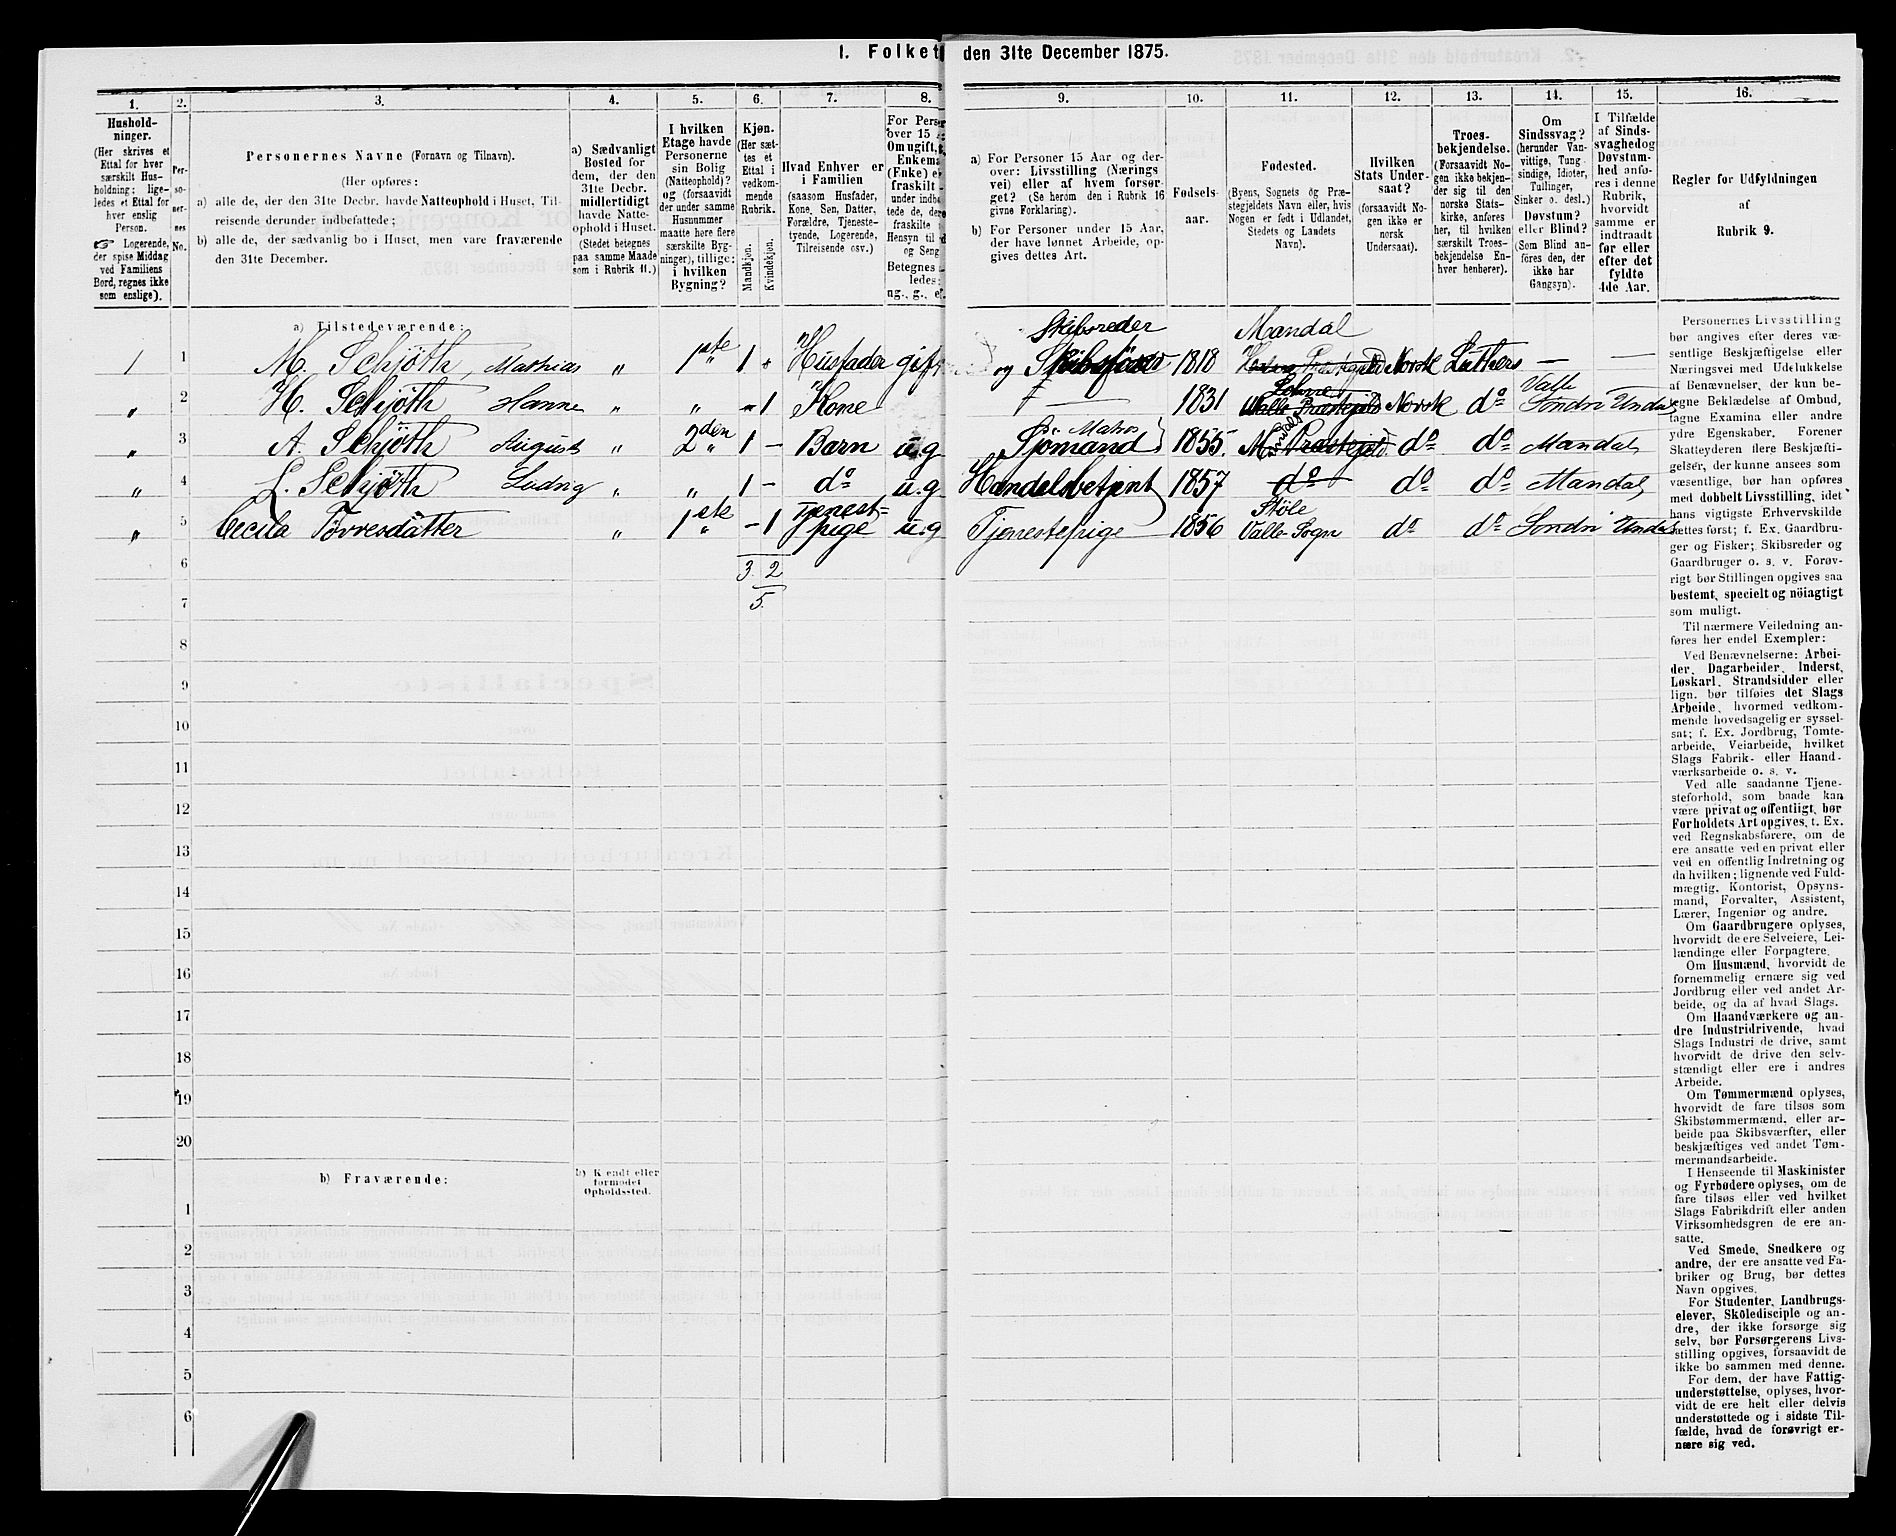 I. Folket den 31te December 1875.
1. 2. 3. 4. 5. 6. 7. 8. 9. 10. 11. 12. 13. 14. 15. 16.
Hushold-
ninger.
(Her skrives et
Ettal for hver
særskilt Hus-
holdning; lige-
ledes et Ettal for
hver enslig
Person.
☞ Logerende,
der spise Middag
ved Familiens
Bord, regnes ikke
som enslige).
Per-
so-
ner-
nes
No.
Personernes Navne (Fornavn og Tilnavn).
(Her opføres:
a) alle de, der den 31te Decbr. havde Natteophold i Huset, Til-
reisende derunder indbefattede;
b) alle de, der sædvanlig bo i Huset, men vare fraværende
den 31te December.
a) Sædvanligt
Bosted for
dem, der den
31te Decbr.
midlertidigt
havde Natte-
ophold i Huset.
(Stedet betegnes
paa samme Maade
som i Rubrik 11.)
I hvilken
Etage havde
Personerne
sin Bolig
(Natteophold)?
og (forsaavidt
der under samme
Husnummer
maatte høre flere
særskilte Byg-
ninger), tillige:
i hvilken
Bygning?
Kjøn.
(Her sæt-
tes et
Ettal i
vedkom-
mende
Rubrik.
Mandkjøn.
Kvindekjøn.
Hvad Enhver er
i Familien
(saasom Husfader,
Kone, Søn, Datter,
Forældre, Tjeneste-
tyende, Logerende,
Tilreisende osv.)
For Perso
over 15 A
Om ugift,
Enkema
(Enke) e
fraskilt
under indbe
tede de, der
fraskilte
Hensyn til
og Seng
Betegnes
ledes:
ug., g., e
a) For Personer 15 Aar og der-
over: Livsstilling (Nærings
vei) eller af hvem forsør-
get? (Se herom den i Rubrik 16
givne Forklaring).
b) For Personer under 15 Aar,
der have lønnet Arbeide, op-
gives dettes Art.
Fødsels-
aar.
Fødested.
(Byens, Sognets og Præ-
stegjeldets Navn eller, hvis
Nogen er født i Udlandet,
Stedets og Landets
Navn).
Hvilken
Stats Under-
saat?
(forsaavidt No-
gen ikke er
norsk
Undersaat).
Troes-
bekjendelse.
(Forsaavidt No-
gen ikke bekjen-
der sig til den
norske Stats-
kirke, anføres
her, til hvilken
særskilt Troes-
bekjendelse En-
hver henhører).
Om
Sindssvag?
(herunder Van-
vittige, Tung-
sindige, Idioter,
Tullinger,
Sinker o. desl.)
Døvstum?
eller Blind?
(Som Blind an-
føres den, der
ikke har
Gangsyn).
I Tilfælde
af Sinds-
svaghed og
Døvstum-
hed anfø-
res i denne
Rubrik,
hvorvidt
samme er
indtraadt
før eller
efter det
fyldte
4de Aar.
Regler for Udfyldningen
af
Rubrik 9.
a) Tilstedeværende:
Skibsreder Mandal
1 1 M. Schjøth, Mathias " 1ste 1 Husfader gift og 1818 Norsk Luthers — —
" 2 H. Schjøth Hanne " " " 1 Kone 1831 Norsk do Valle Søndri Undal
" 3 A. Schjøth August " 2den " 1 – Barn u.g Sjømand 1855. do do Mandal
" 4 L. Schjøth Ludvig " " 1 – do u.g Handelsbetjent 1857 do do do Mandal
" 5 Cecila Torresdatter " 1ste " – 1 Tjenest-
pige u.g Tjenestepige 1856 Støle
Valle Sogn do do Søndri Undal
6 3. 2
7 5.
8
9
10
11
12
13
14
15
16
17
18
19
20
b) Fraværende:
b) Kjendt eller
formodet
Opholdssted.
1
2
3
4
5
6
Personernes Livsstilling
bør angives efter deres væ-
sentlige Beskjæftigelse eller
Næringsvei med Udelukkelse
af Benævnelser, der kun be-
tegne Beklædelse af Ombud,
tagne Examina eller andre
ydre Egenskaber. Forener
Skatteyderen flere Beskjæfti-
gelser, der kunne ansees som
væsentlige, bør han opføres
med dobbelt Livsstilling, idet
hans vigtigste Erhvervskilde
sættes først; f. Ex. Gaardbru-
ger og Fisker; Skibsreder og
Gaardbruger o. s. v. Forøv-
rigt bør Stillingen opgives saa
bestemt, specielt og nöiagtigt
som muligt.
Til nærmere Veiledning an-
føres her endel Exempler:
Ved Benævnelserne: Arbei-
der, Dagarbeider, Inderst,
Løskarl, Strandsidder eller
lign. bør tilføies det Slags
Arbeide, hvormed vedkom-
mende hovedsagelig er syssel-
sat; f. Ex. Jordbrug, Tomte-
arbeide, Veiarbeide, hvilket
Slags Fabrik- eller Haand-
værksarbeide o. s. v.
Ved alle saadanne Tjene-
steforhold, som baade kan
være privat og offentligt, bør
Forholdets Art opgives, t. Ex.
ved Regnskabsførere, om de
ere ansatte ved en privat eller
ved en offentlig Indretning og
da hvilken; lignende ved Fuld-
mægtig, Kontorist, Opsyns-
mand, Forvalter, Assistent,
Lærer, Ingeniør og andre.
Om Gaardbrugere oplyses,
hvorvidt de ere Selveiere, Lei-
lændinge eller Forpagtere.
Om Husmænd, hvorvidt de
fornemmelig ernære sig ved
Jordbrug eller ved andet Ar-
beide, og da af hvad Slags.
Om Haandværkere og an-
dre Industridrivende, hvad
Slags Industri de drive, samt
hvorvidt de drive den selv-
stændigt eller ere i andres
Arbeide.
Om Tømmermænd oplyses,
hvorvidt de fare tilsøs som
Skibstømmermænd, eller ar-
beide paa Skibsværfter, eller
beskjæftiges ved andet Tøm-
mermandsarbeide.
I Henseende til Maskinister
og Fyrbødere oplyses, om de
fare tilsøs eller ved hvilket
Slags Fabrikdrift eller anden
Virksomhedsgren de ere an-
satte.
Ved Smede, Snedkere og
andre, der ere ansatte ved Fa-
briker og Brug, bør dettes
Navn opgives.
For Studenter, Landbrugs-
elever, Skoledisciple og an-
dre, der ikke forsørge sig
selv, bør Forsørgerens Livs-
stilling opgives, forsaavidt de
ikke bo sammen med denne.
For dem, der have Fattig-
understøttelse, oplyses, hvor-
vidt de ere helt eller delvis
understøttede og i sidste Til-
fælde, hvad de forøvrigt er-
nære sig ved.